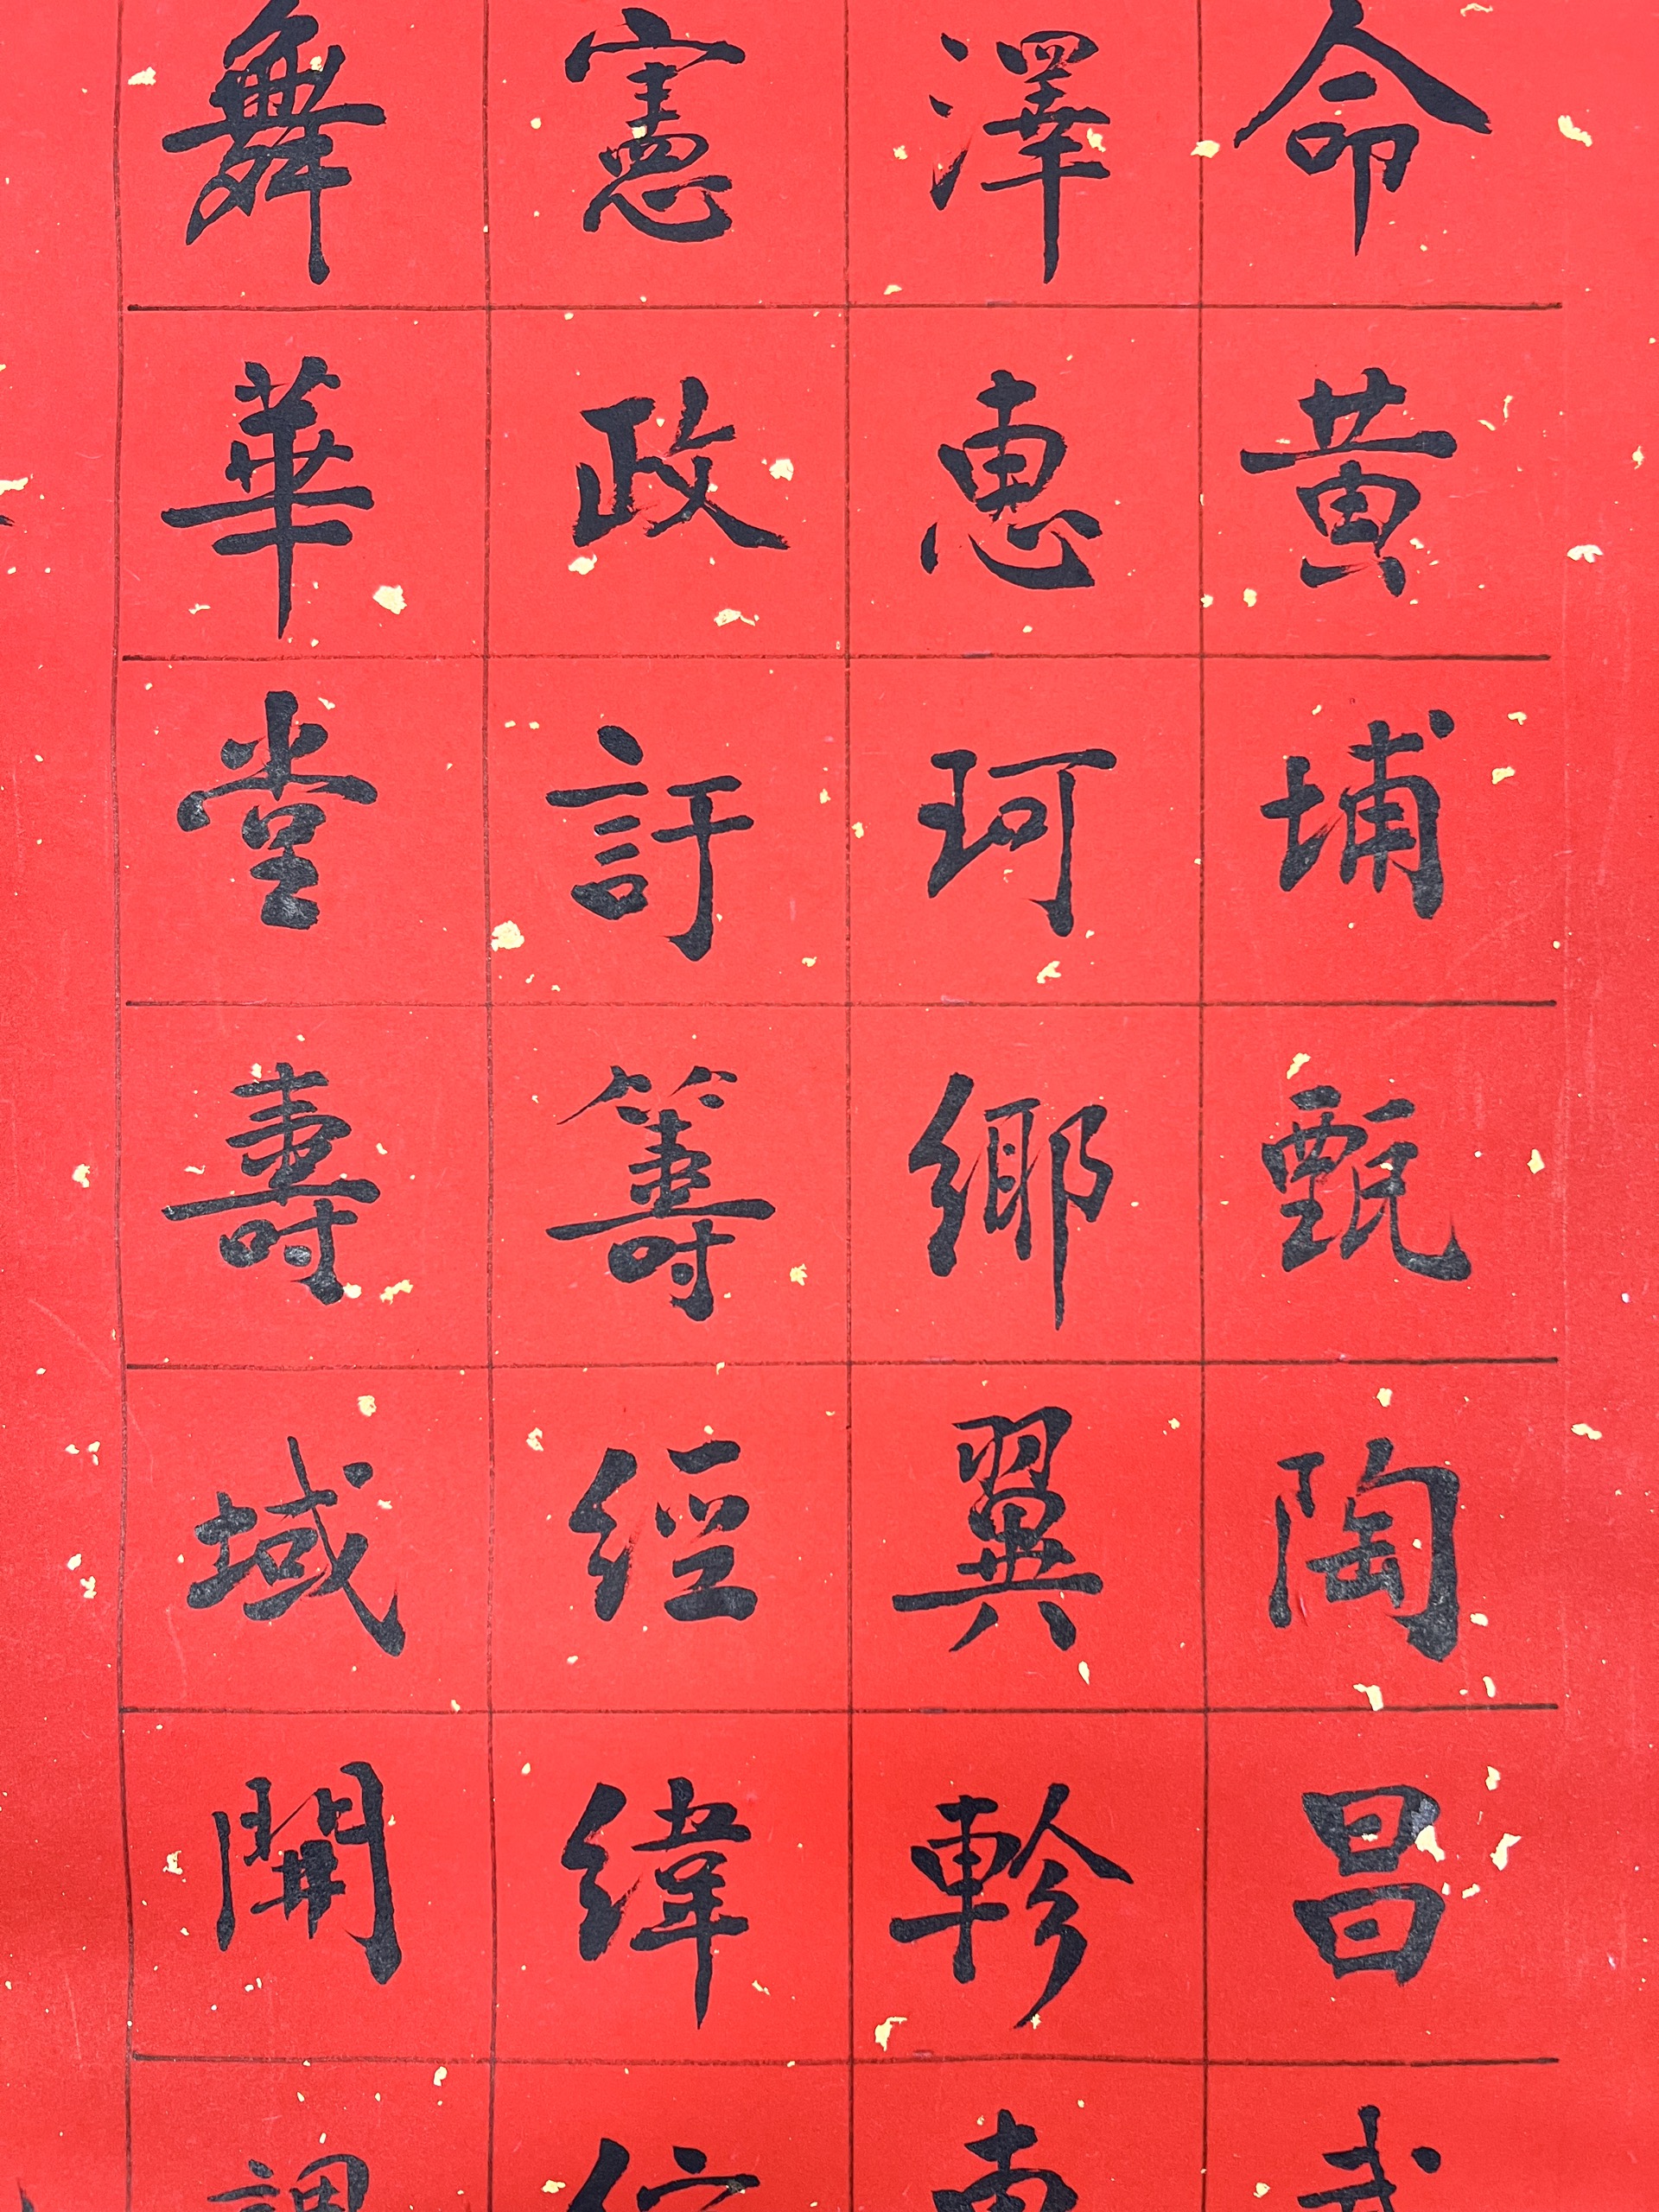 命黄埔甄陶昌
澤惠珂鄉翼軫
憲政訏籌經緯
舞華堂壽域開